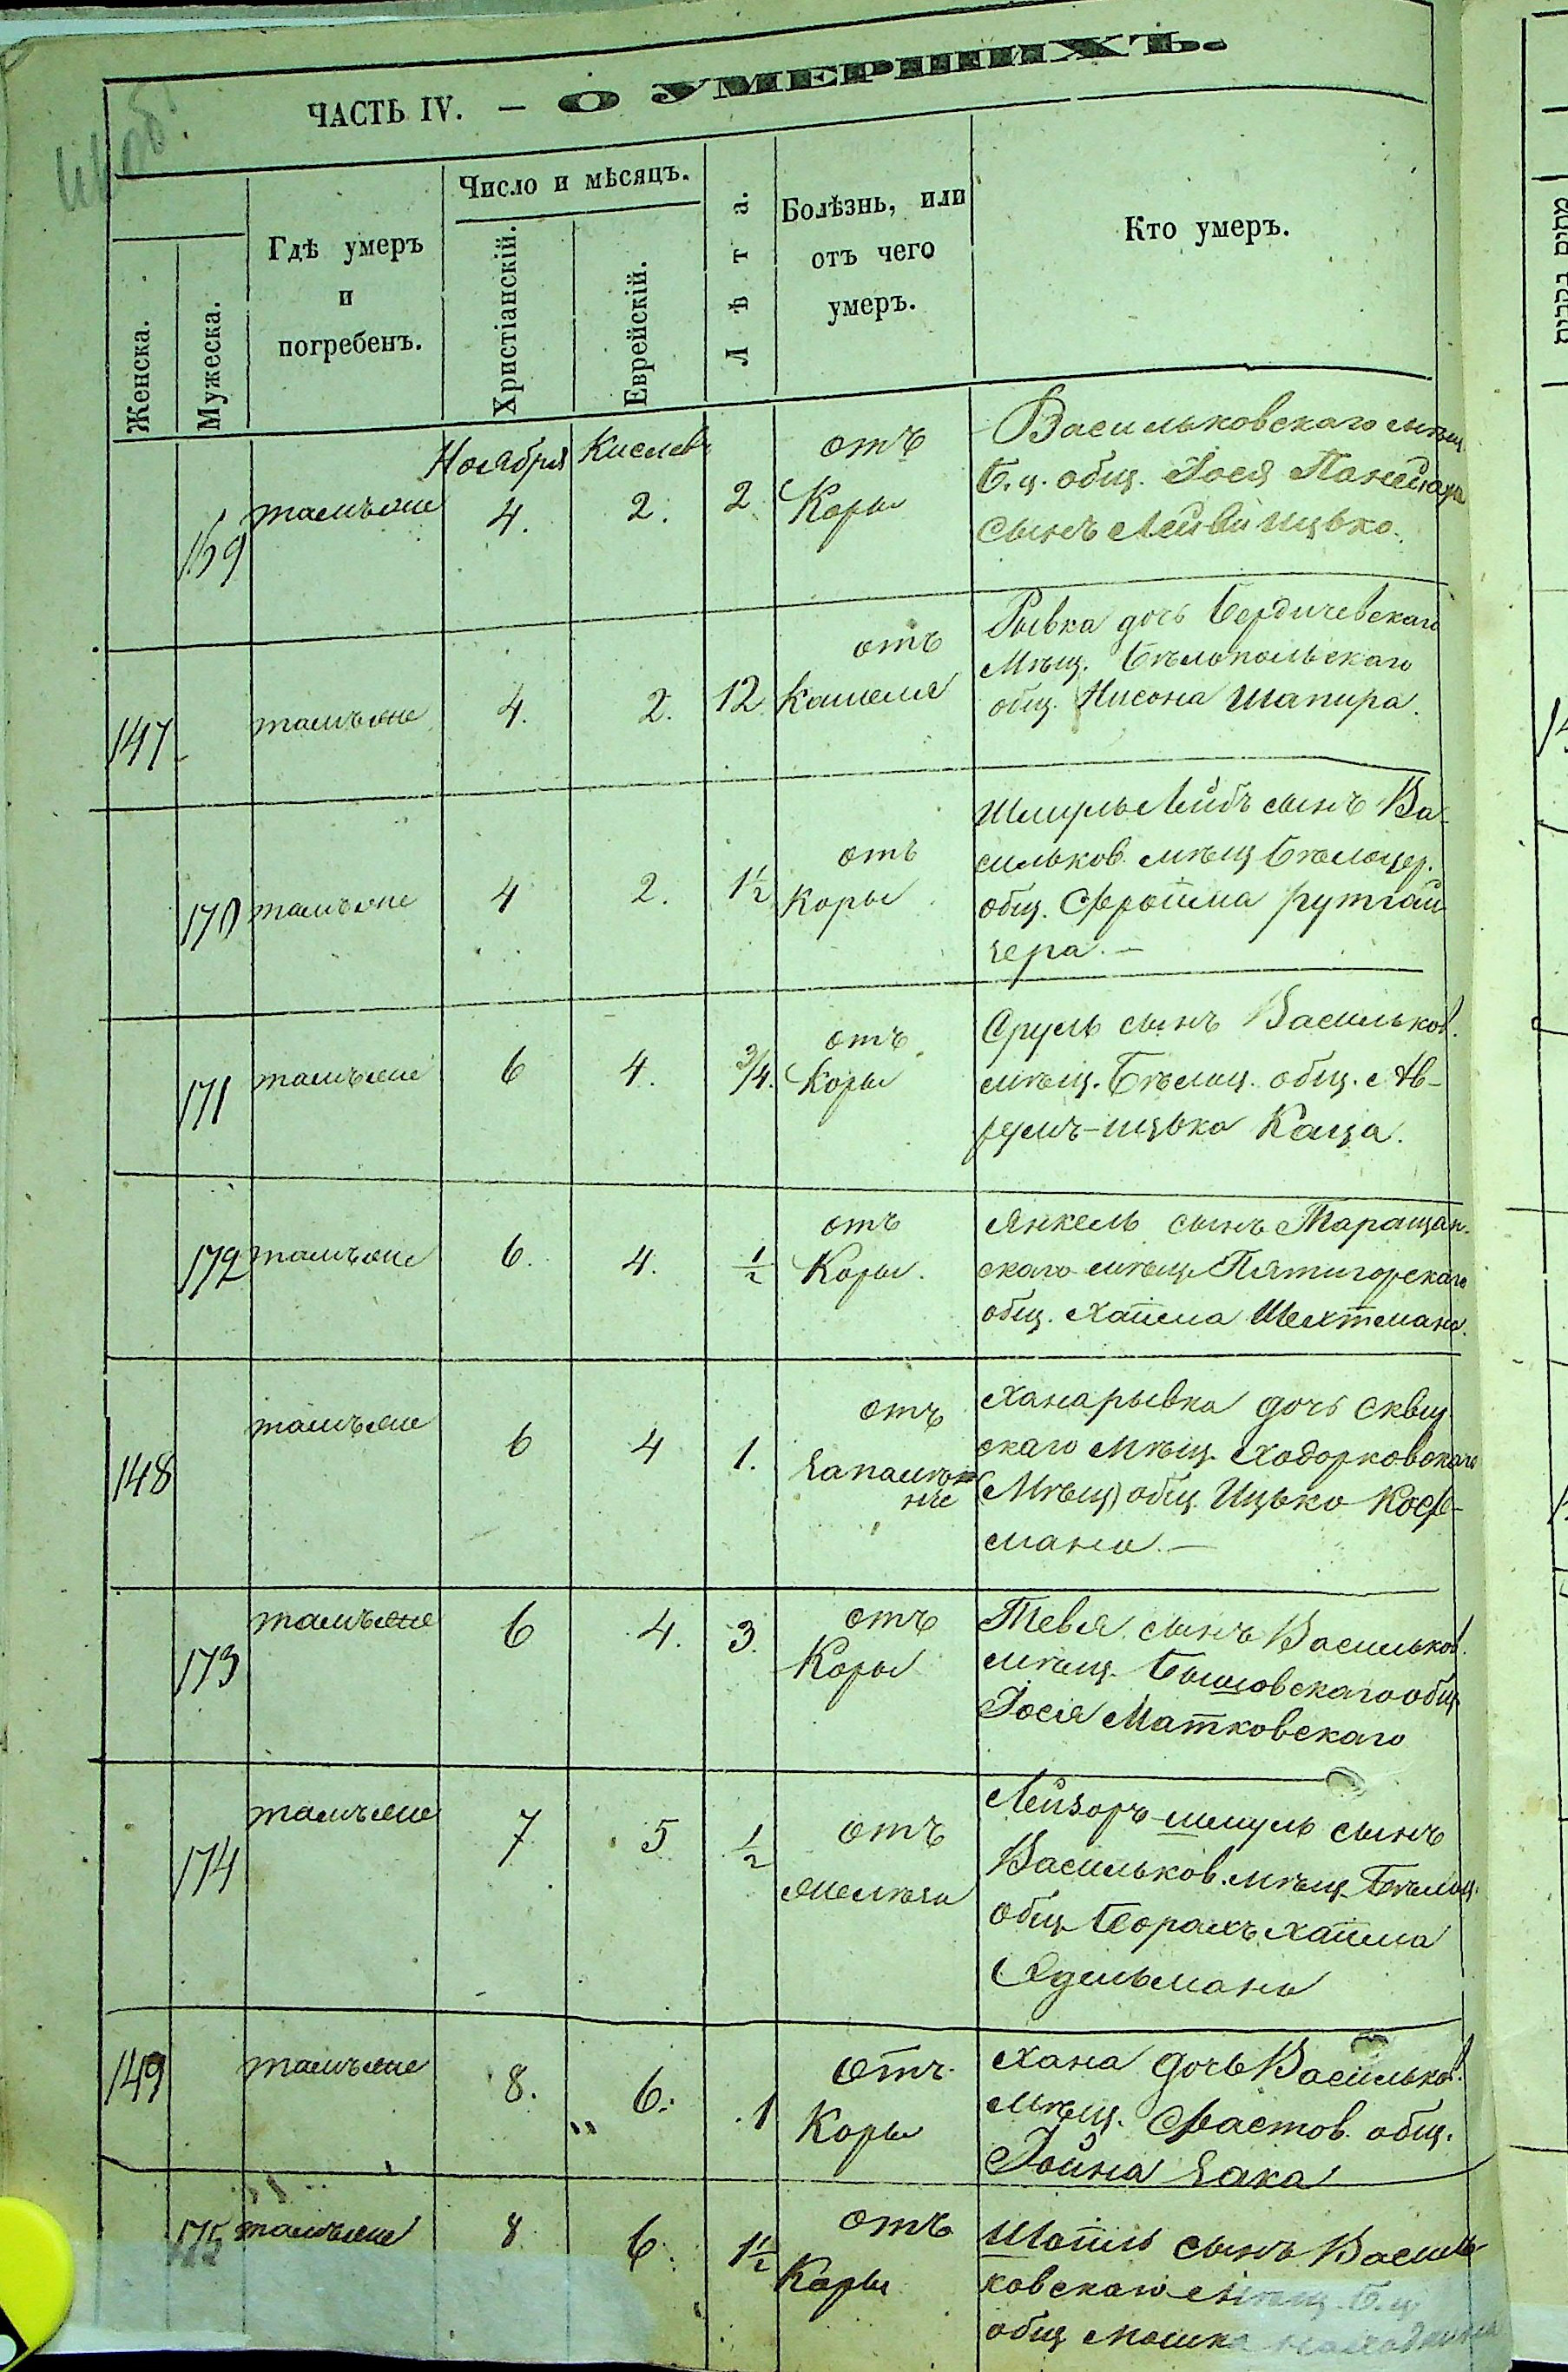 ЧАСТЬ IV. — О УМЕРШИХЪ.
Женска.
Мужеска.
Гдѣ умеръ
и
погребенъ.
Число и мѣсяцъ.
Христіанскій.
Еврейскій.
Лѣта.
Болѣзнь, или
отъ чего
умеръ.
Кто умеръ.
Ноября Кислевъ
169 тамъже 4. 2. 2 отъ
Кори
Васильковскаго мѣщ.
Б. ц. общ. Іося
сынъ Лейви Ицько.
147 тамъже 4. 2. 12 отъ
Кашеля
Рывка дочь Бердичевскаго
Мѣщ. Бѣлопольскаго
общ. Нисона Шапира.
170 тамъже 4 2. 1½ отъ
Кори
Шмуль Лейбъ сынъ Ва-
сильков. мѣщ Бѣлоцер.
общ. Фроима Рутгай
зера. —
171 тамъже 6 4. 3/4. отъ
Кори
Сруль сынъ Васильков.
мѣщ. Бѣлоц. общ. Ав-
румъ-ицька Каца.
172 тамъже 6. 4. ½ отъ
Кори.
Янкель сынъ Таращан-
скаго мѣщ Пятигорскаго
общ. Хаима Шехтмана.
148 тамъже 6 4 1. отъ
Ханарывка дочь Сквир
скаго Мѣщ. Ходорковскаго
(Мѣщ) общ Ицько Коф-
мана. —
173 тамъже 6 4. 3. отъ
Кори
Тевя сынъ Васильков.
мѣщ. Бышовскаго общ
Іося Матковскаго
174 тамъже 7 5 ½ отъ
Лейзоръ-шмуль сынъ
Васильков. мѣщ Бѣлоц.
общ Борахъ Хаима
Едельмана
149 тамъже 8. 6. 1 отъ
Кори
Хана дочь Васильков.
мѣщ. Фастов. общ.
Іойна Зака
175 тамъже 8 6. 1½ отъ
Кори
сынъ Василь-
ковскаго Мѣщ. Б. ц
общ Мошка